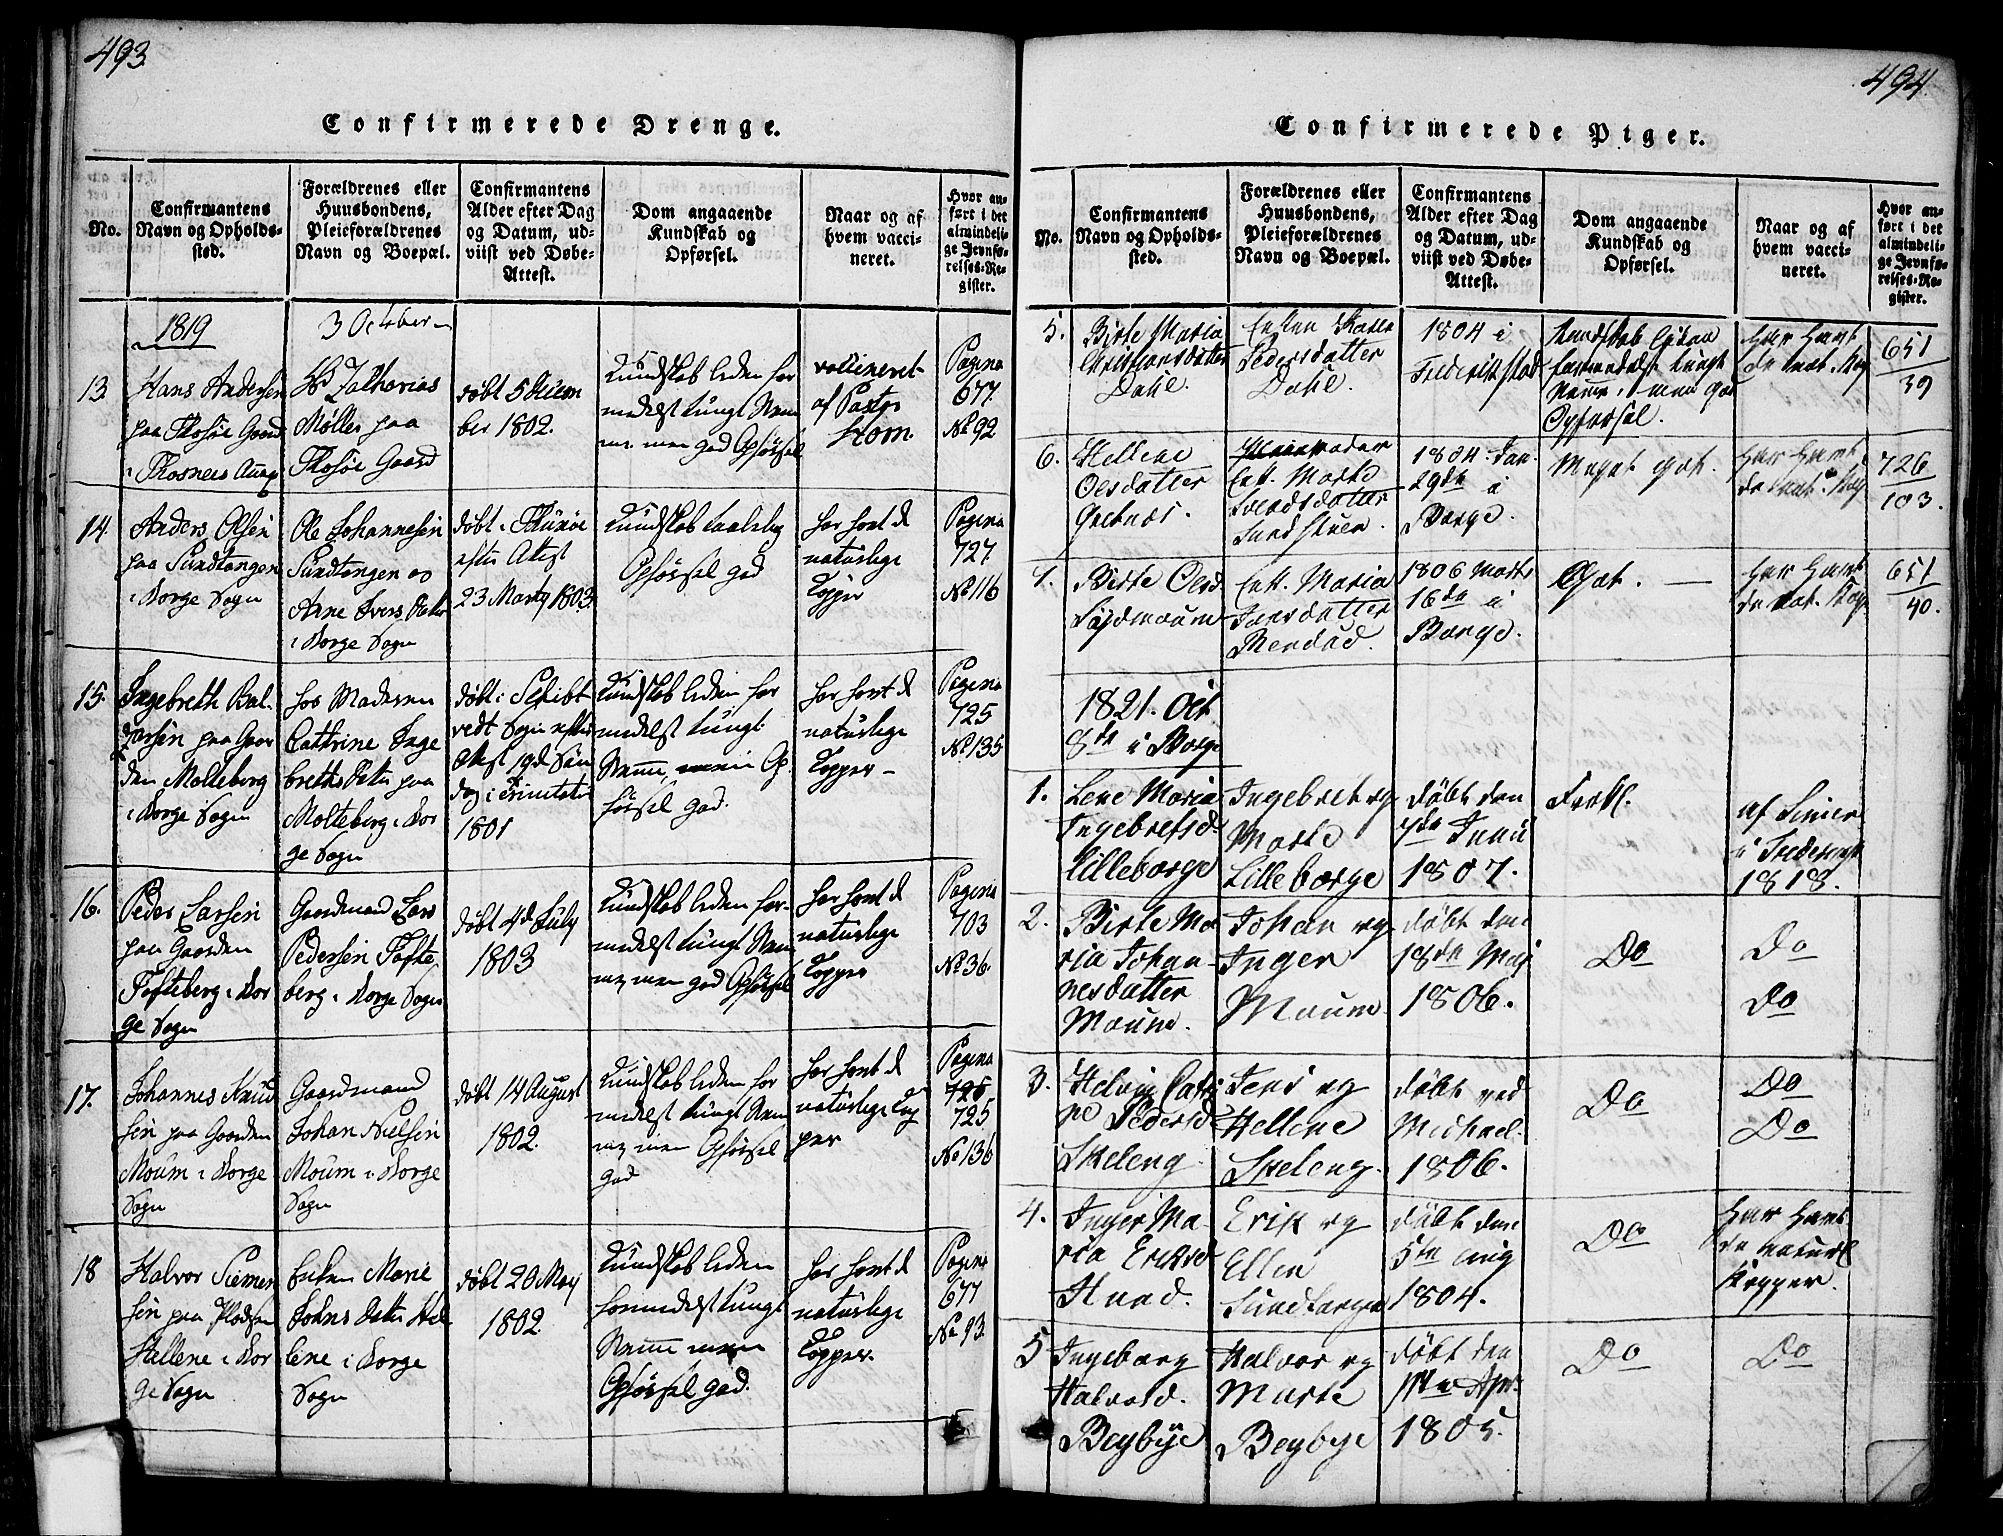 493.
Confirmerede Drenge.
No.
Confirmantens
Navn og Opholds-
sted.
Forældrenes eller
Huusbondens,
Pleieforældrenes
Navn og Boepæl.
Confirmantens
Alder efter Dag
og Datum, ud-
viist ved Døbe-
Attest.
Dom angaaende
Kundskab og
Opførsel.
Naar og af
hvem vacci-
neret.
Hvor an-
ført i det
almindeli-
ge Jevnfø-
relses-Re-
gister.
1819
3 October
13
Hans Andersen
paa Thosøe Gaard
i Thosnes
Hr Zacharias
Møller paa
Thosøe Gaard
døbt 5 Decem
ber 1802.
Kundskab liden for
medelst tungt Nem
me men god Opførsel
vaccineret
af Pastor
Hom.
Pagina
677
No 92
14.
Anders Olsen
paa Sundtangen
i Borge Sogn
Ole Johannesen
Sundtangen og
Anne Ivers Datter
i Borge Sogn
døbt i Thunøe
efter Attest
23 Marty 1803
Kundskab taalelig
Opførsel god
har havt de
naturlige
Kopper
Pagina
727
No 116
15.
Ingebreth Bal-
zersen paa Gaar
den Molteberg
i Borge Sogn
hos Moderen
Cathrine Inge
breths Datter paa
Molteberg i Bor
ge Sogn
døbt i Schibt
vedt Sogn efter
Attest 19de Søn
dag i Trinitatis
1801
Kundskab liden for
medelst tungt
Nemme, men Op
førsel god.
har havt de
naturlige
Kopper
Pagina
725
No 135
16.
Peder Larsen
paa Gaarden
Tofteberg i Bor
ge Sogn
Gaardmand Lars
Pedersen Tofte
berg i Borge Sogn
døbt 4de July
1803
Kundskab liden for-
medelst tungt Nem
me, men god Opførsel
har havt de
naturlige
Kopper
Pagina
703
No 36.
17.
Johannes Knud
sen paa Gaarden
Moum i Borge
Sogn
Gaardmand
Johan Nielsen
Moum i Borge
Sogn
døbt 14 August
1802.
Kundskab liden for
medelst tungt Nem
me, men Opførsel
god
har havt de
naturlige Kop
per
Pagina
725
No 136
18
Halvor Siemen
sen paa Pladsen
Hellene i Bor
ge Sogn
Enken Marie
Johns Datter Hel
lene i Borge
Sogn
døbt 20 May
1802.
Kundskab liden
formedelst tungt
Nemme men
Opførsel god.
har havt de
naturlige
Kopper.
Pagina
677
No 93
494.
Confirmerede Piger.
No.
Confirmantens
Navn og Opholds-
sted.
Forældrenes eller
Huusbondens,
Pleieforældrenes
Navn og Boepæl.
Confirmantens
Alder efter Dag
og Datum, ud-
viist ved Døbe-
Attest.
Dom angaaende
Kundskab og
Opførsel.
Naar og af
hvem vacci-
neret.
Hvor an-
ført i det
almindeli-
ge Jevnfø-
relses-Re-
gister.
5.
Birte Maria
Christiansdatter
Dahl.
Enken Karen
Pedersdatter
Dahl.
1804 i
Frederikstad
Kundskab liden
formedelst tungt
Nemme, men god
Opførsel.
Har havt
de nat. Kop
651
39
6.
Hellene
Olsdatter
Grelnes.
Enk. Marte
Svendsdatter
1804 Jan.
29de i
Borge.
Meget god.
Har havt
de nat. Kop
726
103.
7.
Birte Olsd.
Sydmoum
Enk. Maria
Jansdatter
1806 Marts
16de i
Borge.
God. —
Har havt
de nat. Kop
651
40.
1821. Oct
8de i Borge
1.
Lene Maria
Ingebretsd.
Lilleborge
Ingebret og
Marte
Lilleborge
døbt den
7de Juni
1807.
i Frederiks
1818.
2.
Birte Ma
ria Johan
nesdatter
Moum.
Johan og
Inger
Moum
døbt den
18de Maj
1806.
Do
Do
Do
3.
Helvig Catri
ne Pedersd.
Skeleng
Jens og
Hellene
Skeleng.
døbt ved
Michael.
1806.
Do
Do
Do
4.
Inger Ma-
ria Eriksd
Hund.
Erik og
Ellen
Sundtangen
døbt den
5te Aug
1804.
Do
Har havt
de naturl
Kopper.
5
Ingeborg
Halvord.
Begbye
Halvor og
Marte
Begbye
døbt den
Apr.
1805.
Do
Do